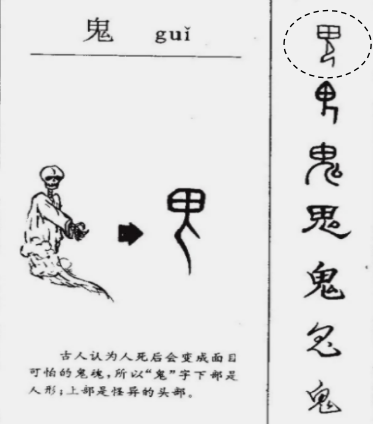 鬼 guǐ
古人认为人死后会变成面目
可怕的鬼魂,所以“鬼”字下部是
人形;上部是怪异的头部。
鬼
鬼
鬼
鬼
鬼
鬼
鬼